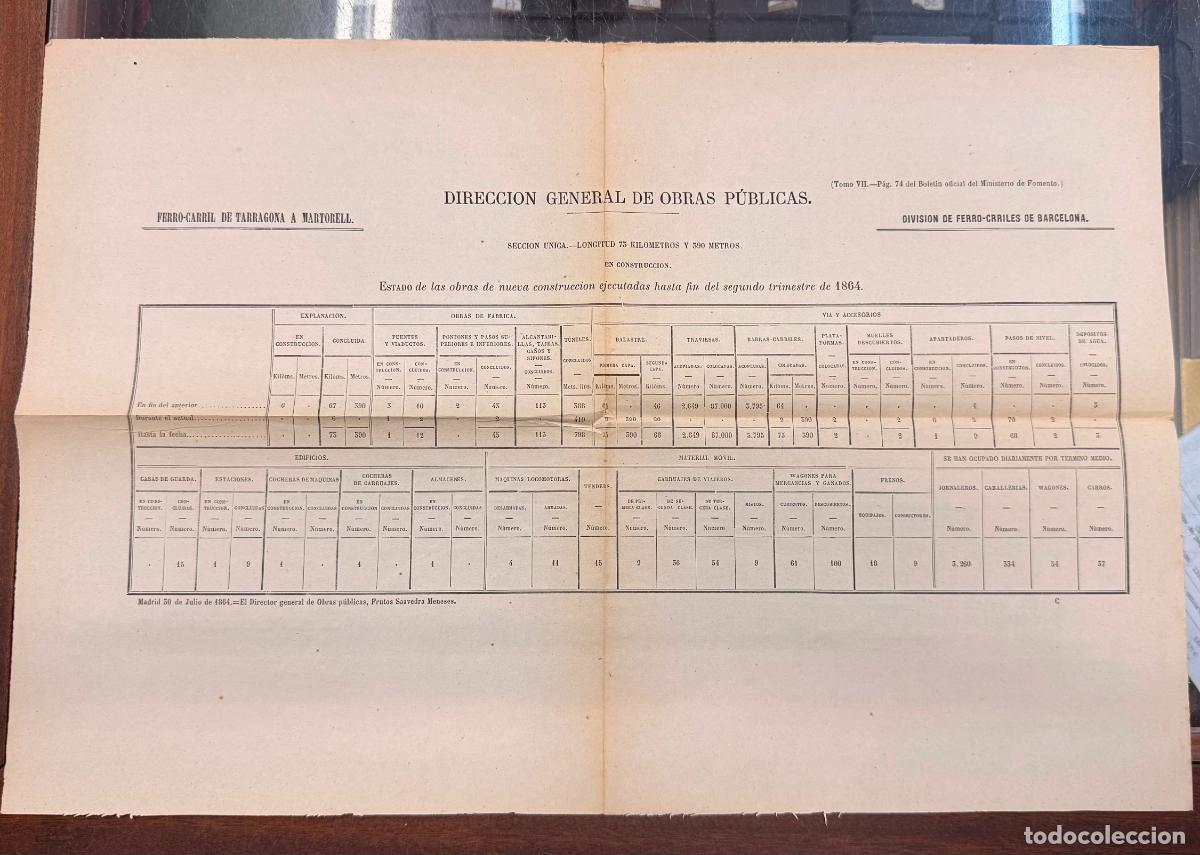 (Tomo VII.—Pág. 74 del Boletin oficial del Ministerio de Fomento.)
DIRECCION GENERAL DE OBRAS PÚBLICAS.
FERRO-CARRIL DE TARRAGONA A MARTORELL.
DIVISION DE FERRO-CRRILES DE BARCELONA.
SECCION UNICA.—LONGITUD 73 KILOMETROS Y 390 METROS.
EN CONSTRUCCION.
ESTADO de las obras de nueva construccion ejecutadas hasta fin del segundo trimestre de 1864.
EXPLANACION. OBRAS DE FABRICA. VIA Y ACCESORIOS
EN CONSTRUCCION. CONCLUIDA. PUENTES Y VIADUCTOS. PONTONES Y PASOS SUPERIORES E INFERIORES. ALCANTARILLAS, TAJEAS, CAÑOS Y SIFONES. TUNELES. BALASTRE. TRAVIESAS. BARRAS-CARRILES. PLATAFORMAS. MUELLES DESCUBIERTOS. APARTADEROS. PASOS DE NIVEL. DEPOSITOS DE AGUA.
EN CONSTRUCCION. CONCLUIDOS. EN CONSTRUCCION. CONCLUIDOS. CONCLUIDOS. CONCLUIDOS PRIMERA CAPA. SEGUNDA CAPA. ACOPIADAS. COLOCADAS. ACOPIADAS. COLOCADAS. COLOCADAS EN CONSTRUCCION. CONCLUIDOS. EN CONSTRUCCION. CONCLUIDOS. EN CONSTRUCCION. CONCLUIDOS.
Kilóms. Metros. Kilóms. Metros. Número. Número. Número. Número. Número. Mets. lins. Kilóms. Metros. Kilóms. Número Número. Número. Kilóms. Metros. Número. Número. Número. Número. Número. Número. Número. Número.
En fin del anterior 6 . 67 390 3 10 2 43 113 388 . 46 2.649 87.000 3.795 64 . . . . . 4 . . 3
Durante el actual . . 6 . 1 2 . 2 . 410 9 390 20 . . . 9 390 2 . 2 . 70 2 .
Hasta la fecha . . 73 390 4 12 . 45 113 798 390 66 2.649 87.000 3.795 73 390 2 . 2 1 9 68 2 3
EDIFICIOS. MATERIAL MOVIL. SE HAN OCUPADO DIARIAMENTE POR TERMINO MEDIO.
CASAS DE GUARDA. ESTACIONES. COCHERAS DE MAQUINAS COCHERAS DE CARRUAJES. ALMACENES. MAQUINAS LOCOMOTORAS. TENDERS. CARRUAJES DE VIAJEROS. WAGONES PARA MERCANCIAS Y GANADOS. FRENOS. JORNALEROS. CABALLERIAS. WAGONES. CARROS.
EN CONSTRUCCION. CONCLUIDAS. EN CONSTRUCCION. CONCLUIDAS EN CONSTRUCCION. CONCLUIDAS EN CONSTRUCCION. CONCLUIDAS EN CONSTRUCCION. CONCLUIDAS DESARMADAS. ARMADAS. DE PRIMERA CLASE. DE SEGUNDA CLASE. DE TERCERA CLASE. MISTOS. CUBIERTOS. DESCUBIERTOS. EQUIPAJES. CONDUCTORES.
Número. Número. Número. Número. Número. Número. Número. Número. Número. Número. Número. Número. Número. Número. Número. Número. Número. Número. Número. Número. Número. Número. Número. Número. Número.
. 15 1 9 1 . 1 . 1 . 4 11 15 9 36 54 9 61 100 18 9 3.260 334 54 37
Madrid 30 de Julio de 1864.=El Director general de Obras públicas, Frutos Saavedra Meneses.
C
todocoleccion